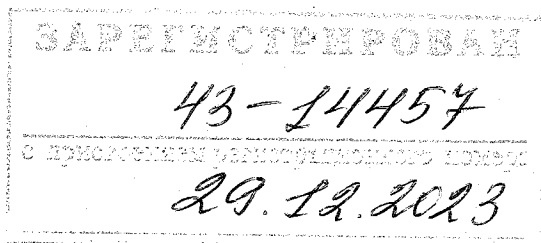 ЗАРЕГИСТРИРОВАН
43-14457
с присвоением регистрационного номера
29.12.2023